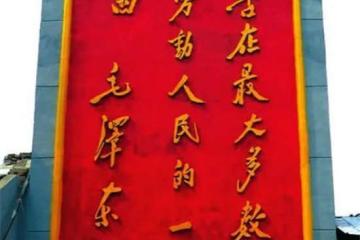 在最大多数
劳動人民的一
面 毛澤东